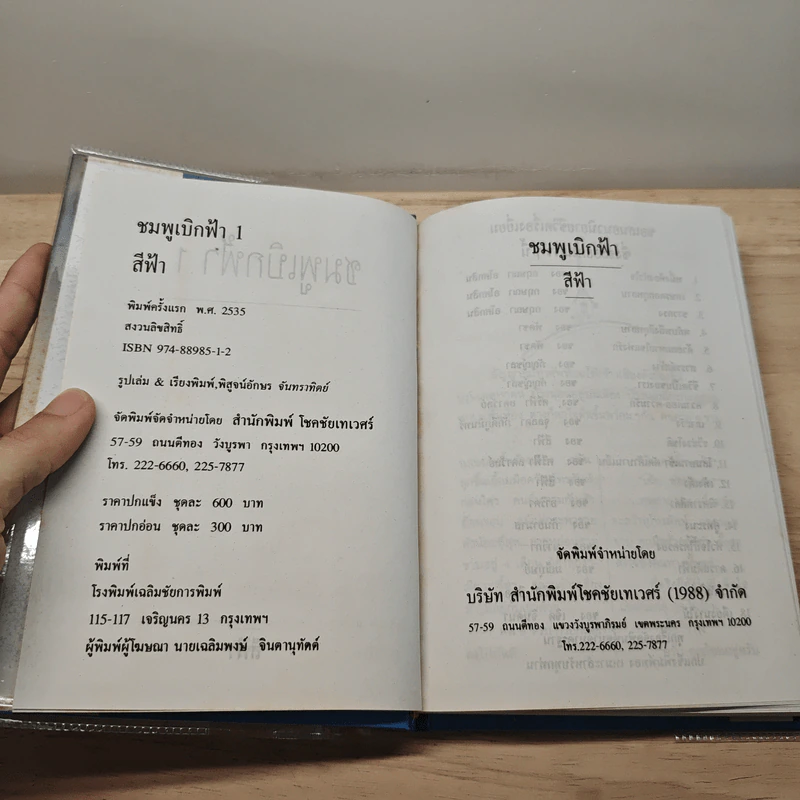 ชมพูเบิกฟ้า 1
สีฟ้า
พิมพ์ครั้งแรก พ.ศ. 2535
สงวนลิขสิทธิ์
ISBN 974-88985-1-2
รูปเล่ม & เรียงพิมพ์,พิสูจน์อักษร จันทราทิตย์
จัดพิมพ์จัดจำหน่ายโดย สำนักพิมพ์ โชคชัยเทเวศร์
57-59 ถนนตีทอง วังบูรพา กรุงเทพฯ 10200
โทร. 222-6660, 225-7877
ราคาปกแข็ง ชุดละ 600 บาท
ราคาปกอ่อน ชุดละ 300 บาท
พิมพ์ที่
โรงพิมพ์เฉลิมชัยการพิมพ์
115-117 เจริญนคร 13 กรุงเทพฯ
ผู้พิมพ์ผู้โฆษณา นายเฉลิมพงษ์ จินดานุทัตต์
ชมพูเบิกฟ้า
สีฟ้า
จัดพิมพ์จำหน่ายโดย
บริษัท สำนักพิมพ์โชคชัยเทเวศร์ (1988) จำกัด
57-59 ถนนตีทอง แขวงวังบูรพาภิรมย์ เขตพระนคร กรุงเทพฯ 10200
โทร.222-6660, 225-7877